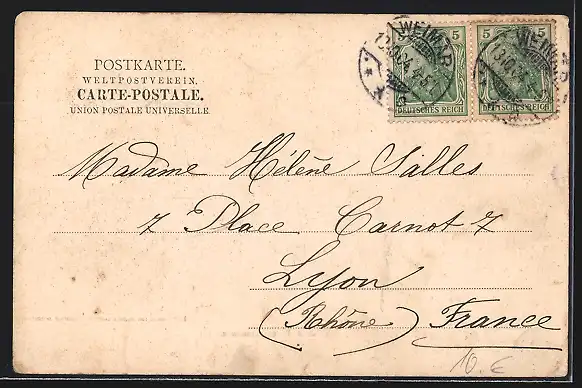 POSTKARTE.
WELTPOSTVEREIN.
CARTE-POSTALE.
UNION POSTALE UNIVERSELLE
5 5
WEIMAR WEIMAR
DEUTSCHES REICH DEUTSCHES REICH
Madame Hélène Salles
7 Place Carnot 7
Lyon
(Rhône) France
10 €